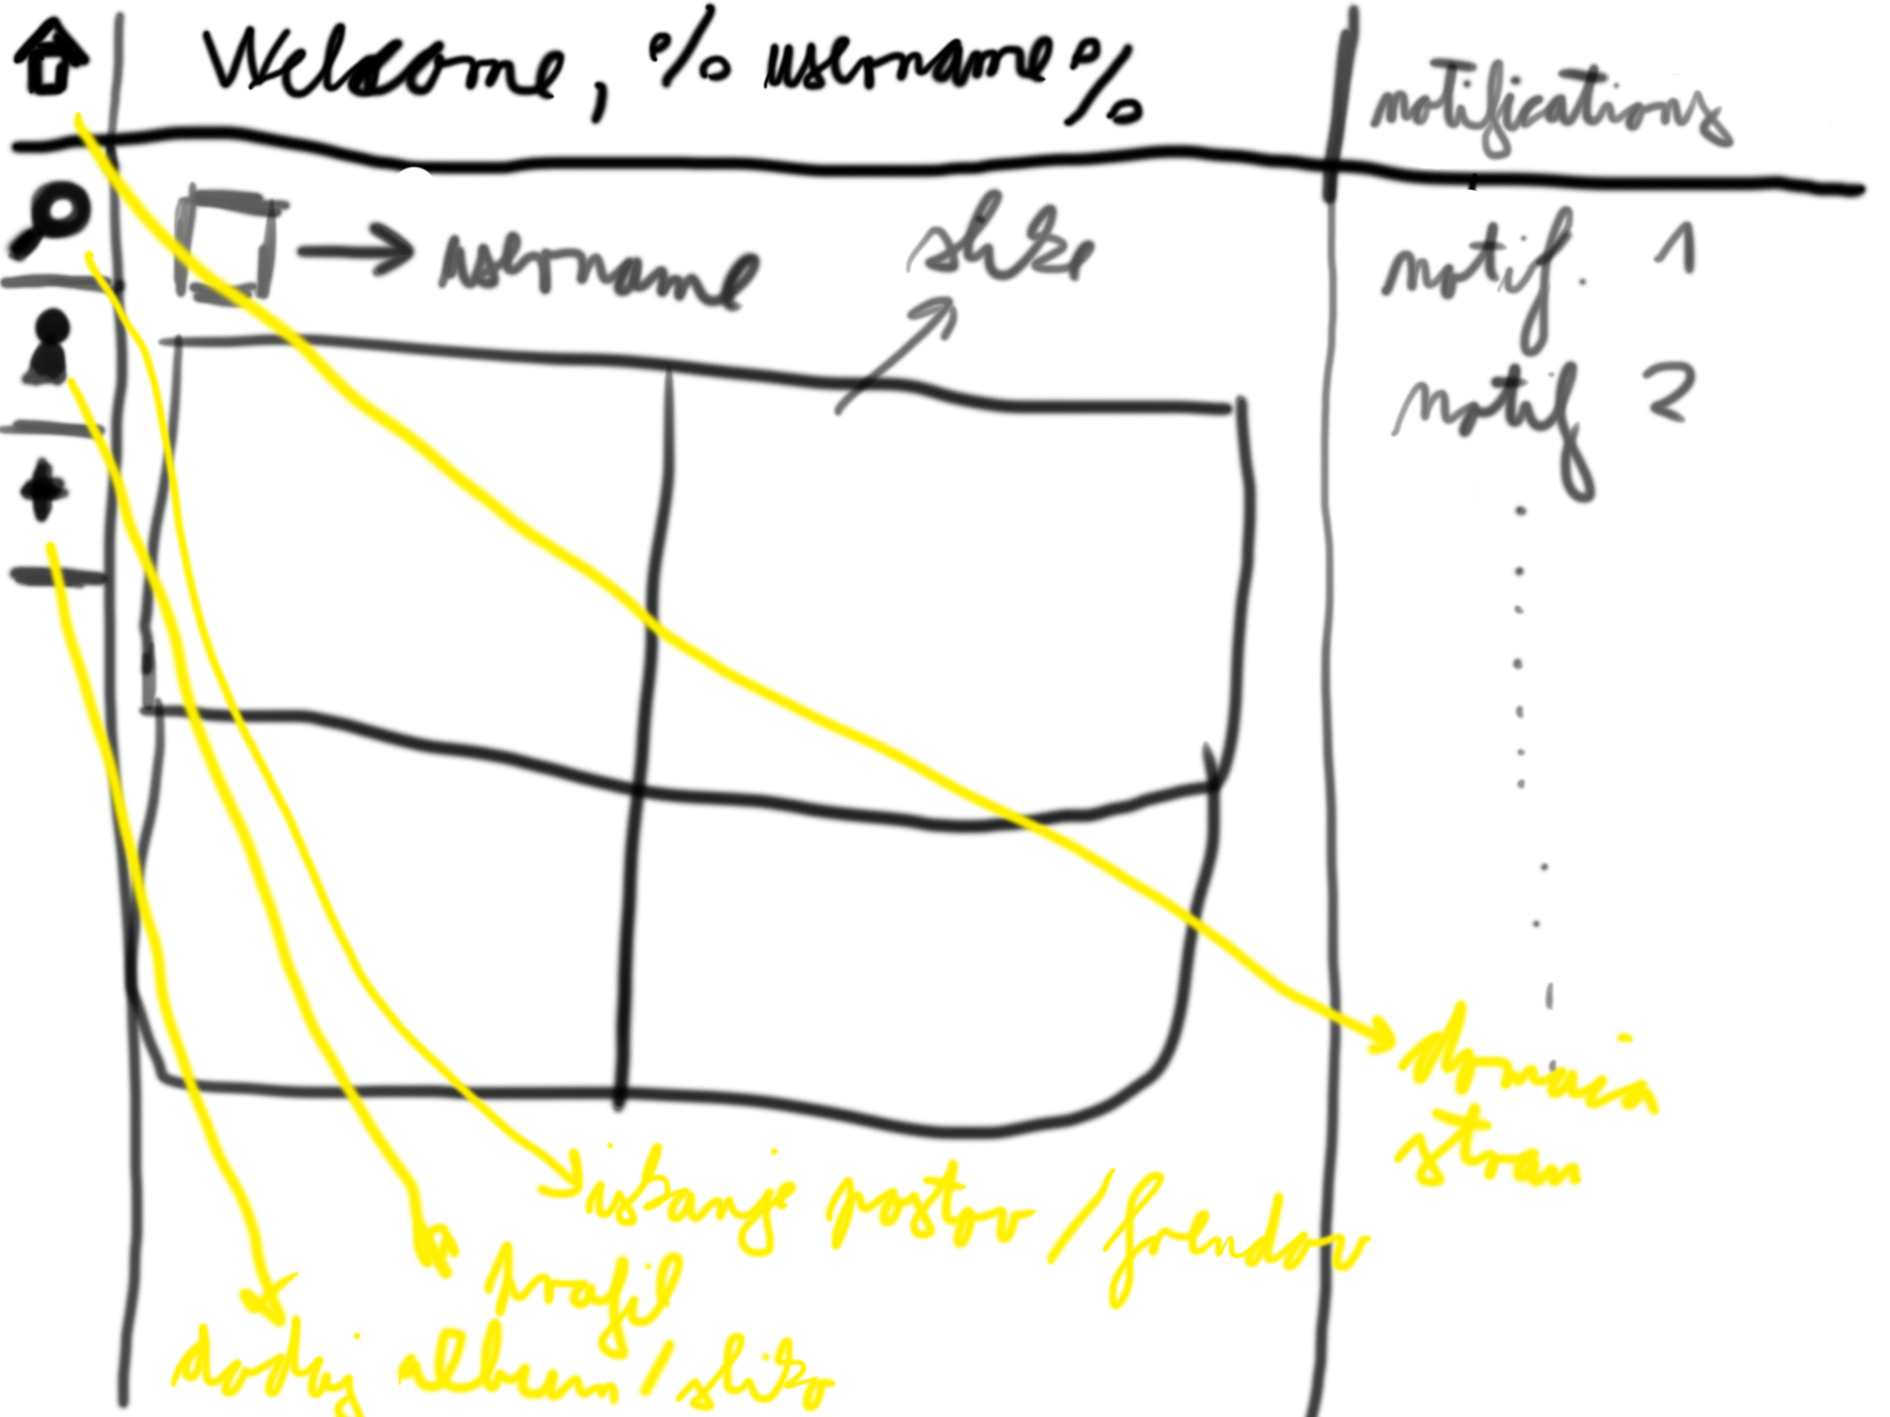 Welcome, %username%
notifications
username
slike
notif. 1
notif 2
domača
stran
iskanje postov / frendov
profil
dodaj album / sliko